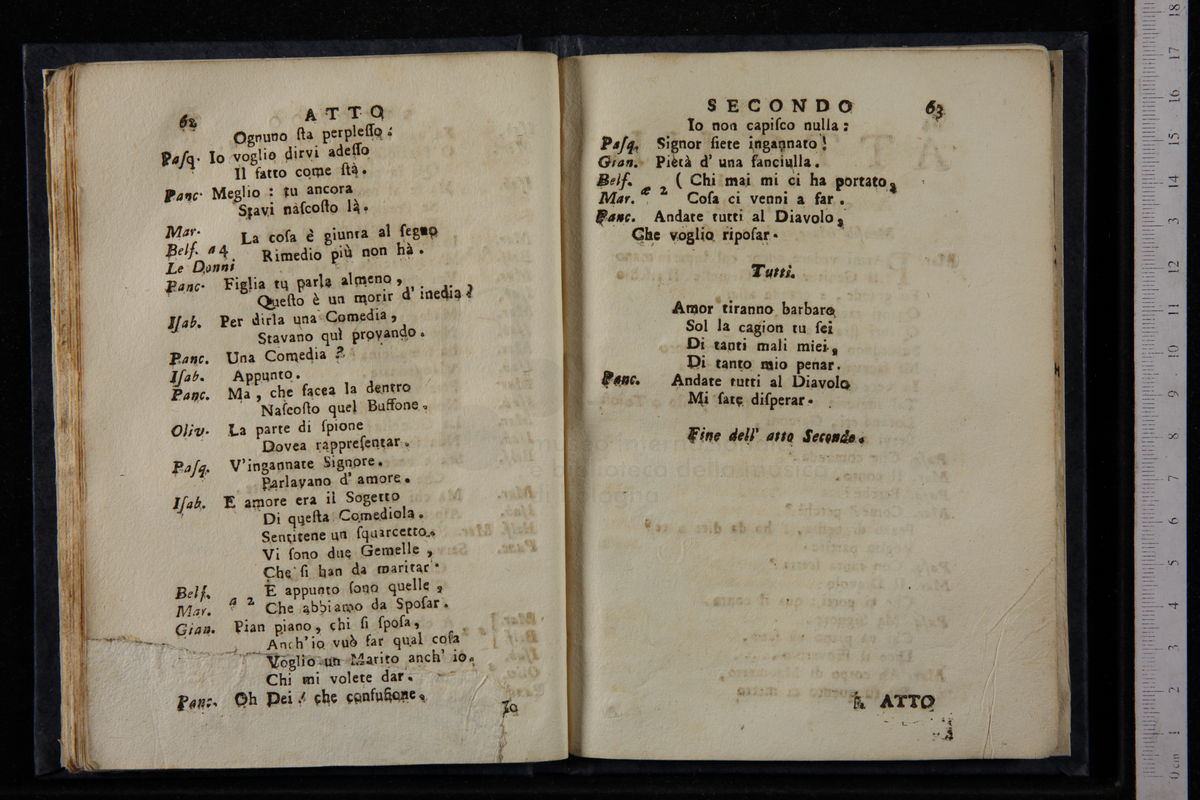 62 ATTO
Ognuno ſta perpleſſo:
Paſq. Io voglio dirvi adeſſo
Il fatto come ſtà.
Panc. Meglio: tu ancora
Stavi naſcoſto là.
Mar.
Belf. a 4
Le Donni
La coſa è giunta al ſegno
Rimedio più non hà.
Panc. Figlia tu parla almeno,
Queſto è un morir d' inedia?
Iſab. Per dirla una Comedia,
Stavano quì provando.
Panc. Una Comedia?
Iſab. Appunto.
Panc. Ma, che facea la dentro
Naſcoſto quel Buffone.
Oliv. La parte di ſpione
Dovea rappreſentar.
Paſq. V'ingannate Signore.
Parlavano d' amore.
Iſab. E amore era il Sogetto
Di queſta Comediola.
Sentitene un ſquarcetto.
Vi ſono due Gemelle,
Che ſi han da maritar.
Belf. E appunto ſono quelle,
Mar. a 2 Che abbiamo da Spoſar.
Gian. Pian piano, chi ſi ſpoſa,
Anch'io vuò far qual coſa
Voglio un Marito anch' io.
Chi mi volete dar.
Panc. Oh Dei! che confuſione.
Io
SECONDO 63
Io non capiſco nulla:
Paſq. Signor ſiete ingannato!
Gian. Pietà d' una fanciulla.
Belf. a 2 ( Chi mai mi ci ha portato,
Mar. Coſa ci venni a far.
Panc. Andate tutti al Diavolo,
Che voglio ripoſar.
Tutti.
Amor tiranno barbaro
Sol la cagion tu ſei
Di tanti mali miei,
Di tanto mio penar.
Panc. Andate tutti al Diavolo
Mi fate diſperar.
Fine dell' atto Secondo.
ATTO
museo internazionale
biblioteca della musica
di bologna